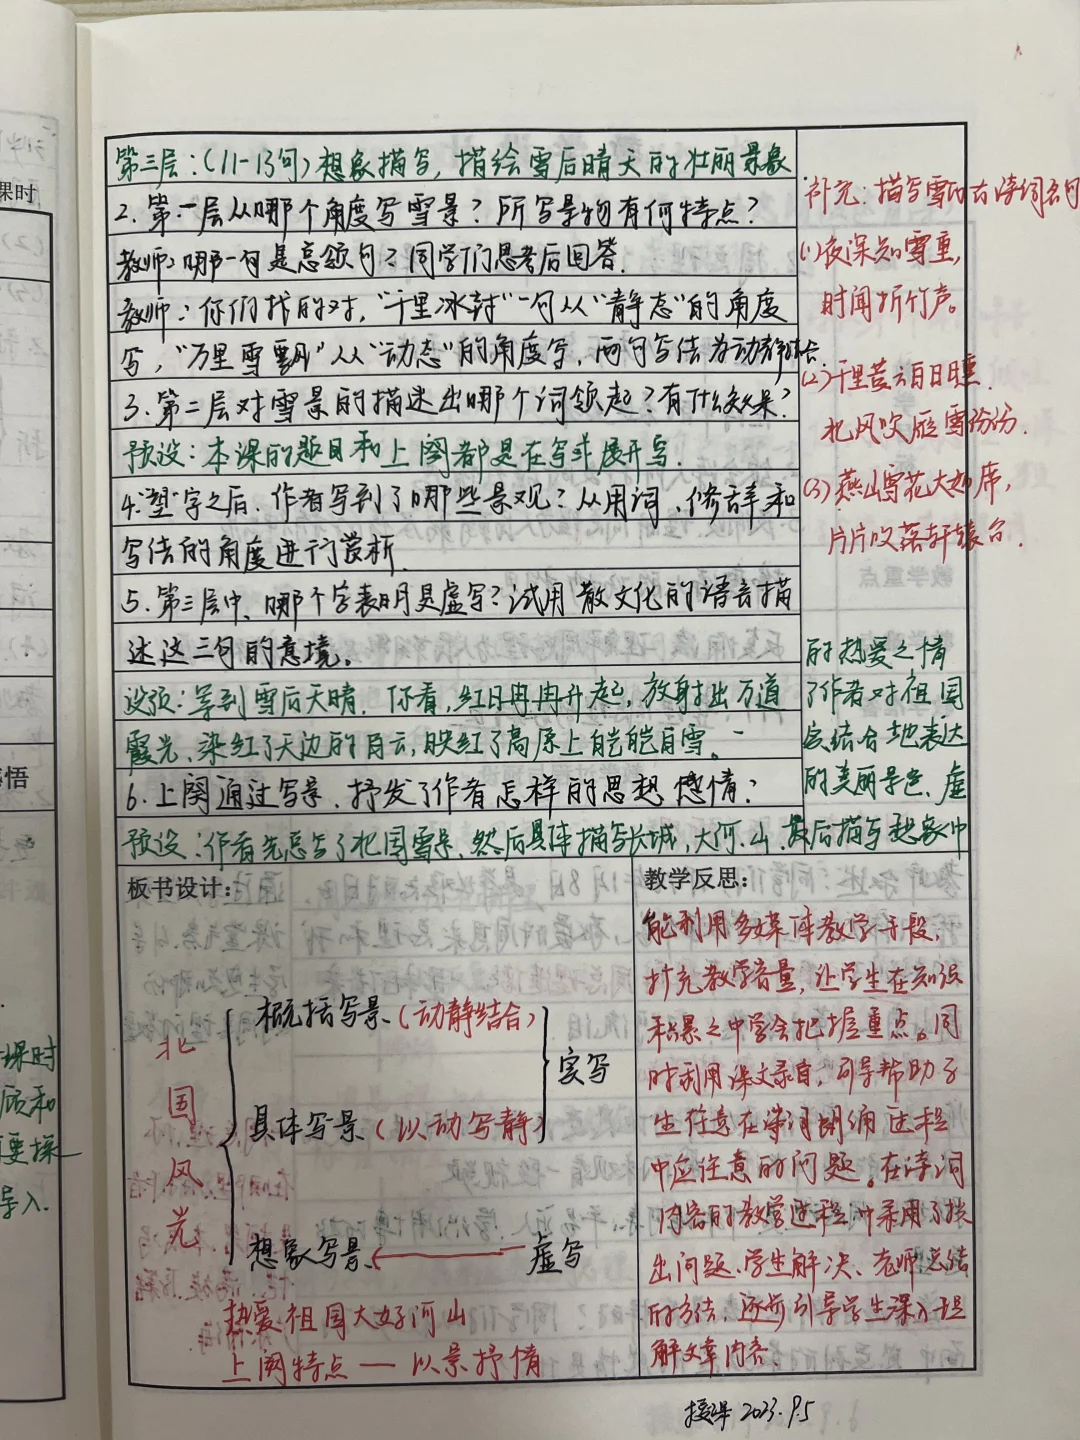 第三层:(11-13句)想象描写,描绘雪后晴天的壮丽景象
2.第一层从哪个角度写雪景?所写景物有何特点?
教师:哪一句是总领句?同学们思考后回答.
教师:你们找的对,“千里冰封”一句从“静态”的角度
写,“万里雪飘”从“动态”的角度写,两句写法为动静结合.
3.第二层对雪景的描述由哪个词领起?有什么效果?
预设:本课的题目和上阕都是在写 展开写.
4.“望”字之后,作者写到了哪些景观?从用词、修辞和
写法的角度进行赏析
5.第三层中、哪个字表明是虚写?试用散文化的语言描
述这三句的意境。
设预:等到雪后天晴.你看,红日冉冉升起,放射出万道
霞光、染红了天边的白云,映红了高原上皑皑白雪。
6.上阕通过写景、抒发了作者怎样的思想感情?
预设:作者先总写了北国雪景、然后具体描写长城,大河、山、最后描写想象中
的美丽景色、虚
实结合地表达
了作者对祖国
的热爱之情
补充:描写雪的古诗词名句
(1)夜深知雪重,
时闻折竹声。
(2)千里黄云白日曛.
北风吹雁雪纷纷.
(3)燕山雪花大如席,
片片吹落轩辕台.
板书设计:
北国风光
概括写景(动静结合)
具体写景(以动写静)
实写
想象写景
虚写
热爱祖国大好河山
上阕特点 — 以景抒情
教学反思:
能利用多媒体教学手段,
扩充教学容量,让学生在知识
积累之中学会把握重点。同
时利用课文录音,引导帮助学
生注意在诗词朗诵过程
中应注意的问题。在诗词
内容的教学过程中采用了提
出问题、学生解决、老师总结
的方法,逐步引导学生深入理
解文章内容.
授课 2023.9.5
课时
悟
课时
质和
要探
导入.
教学重点